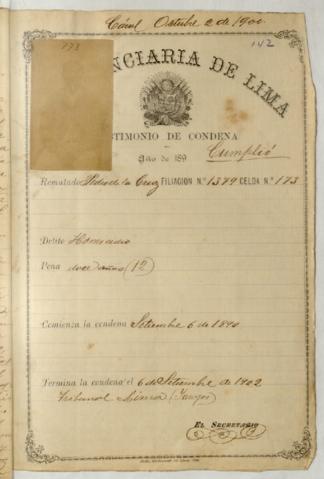 Cárcel Octubre 2 de 1900
173
142
NCIARIA DE LIMA
STIMONIO DE CONDENA
Año de 189
Cumplió
Rematado Pedro de la Cruz FILIACION N.º 1379 CELDA N.º 173
Delito Homicidio
Pena doce años (12)
Comienza la condena Setiembre 6 de 1890
Termina la condena el 6 de Setiembre de 1902
Tribunal (Yauyos)
EL SECRETARIO